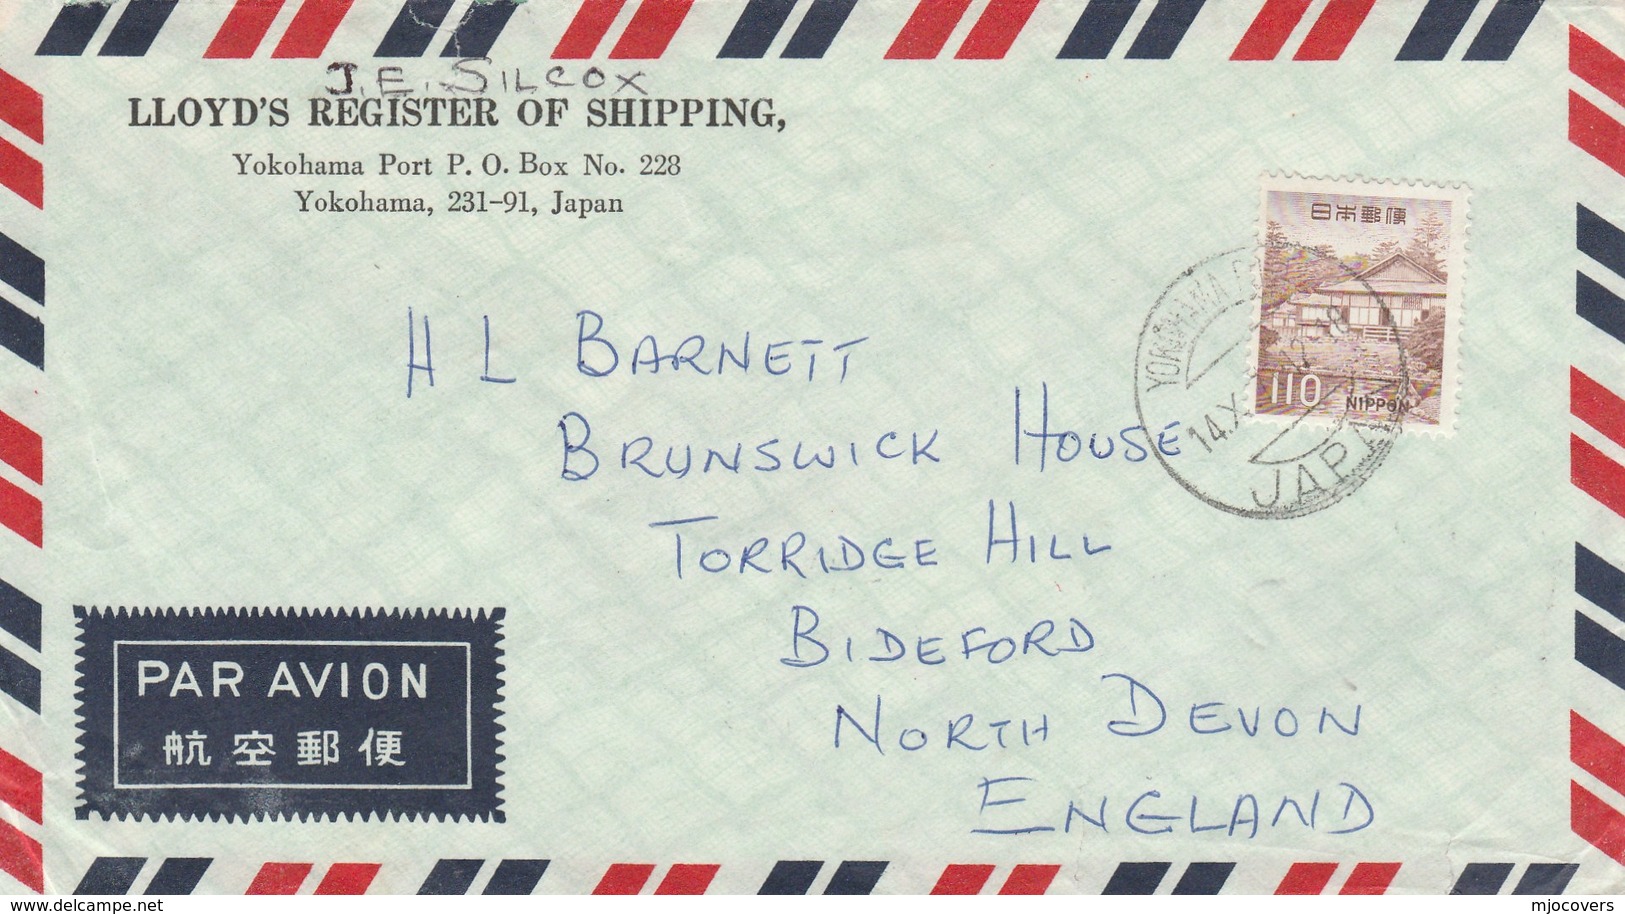 J.E. SILCOX
LLOYD'S REGISTER OF SHIPPING,
Yokohama Port P. O. Box No. 228
Yokohama, 231-91, Japan
日本郵便
110
NIPPON
YOKOHAMA
14.X
12-18
JAPAN
H L BARNETT
BRUNSWICK HOUSE
TORRIDGE HILL
BIDEFORD
NORTH DEVON
ENGLAND
PAR AVION
航空郵便
delcampe.net
mjocovers